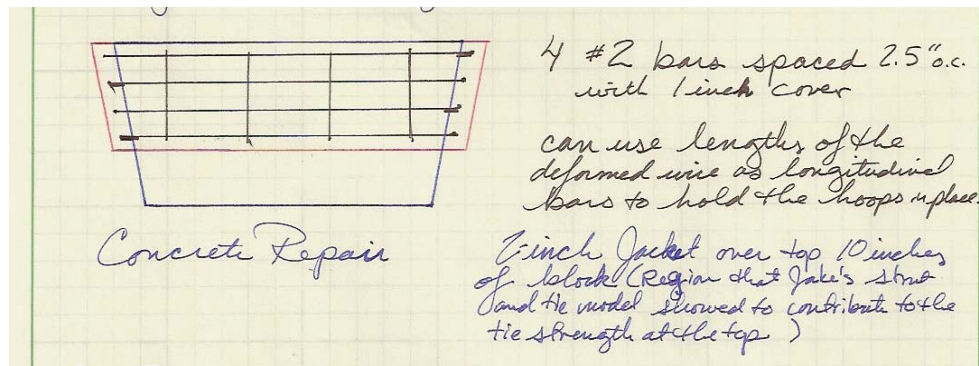 4 #2 bars spaced 2.5" o.c.
with 1 inch cover
can use lengths of the
deformed wire as longitudinal
bars to hold the hoops in place.
Concrete Repair
2-inch Jacket over top 10 inches
of block (Region that Jake's strut
and tie model showed to contribute to the
tie strength at the top )